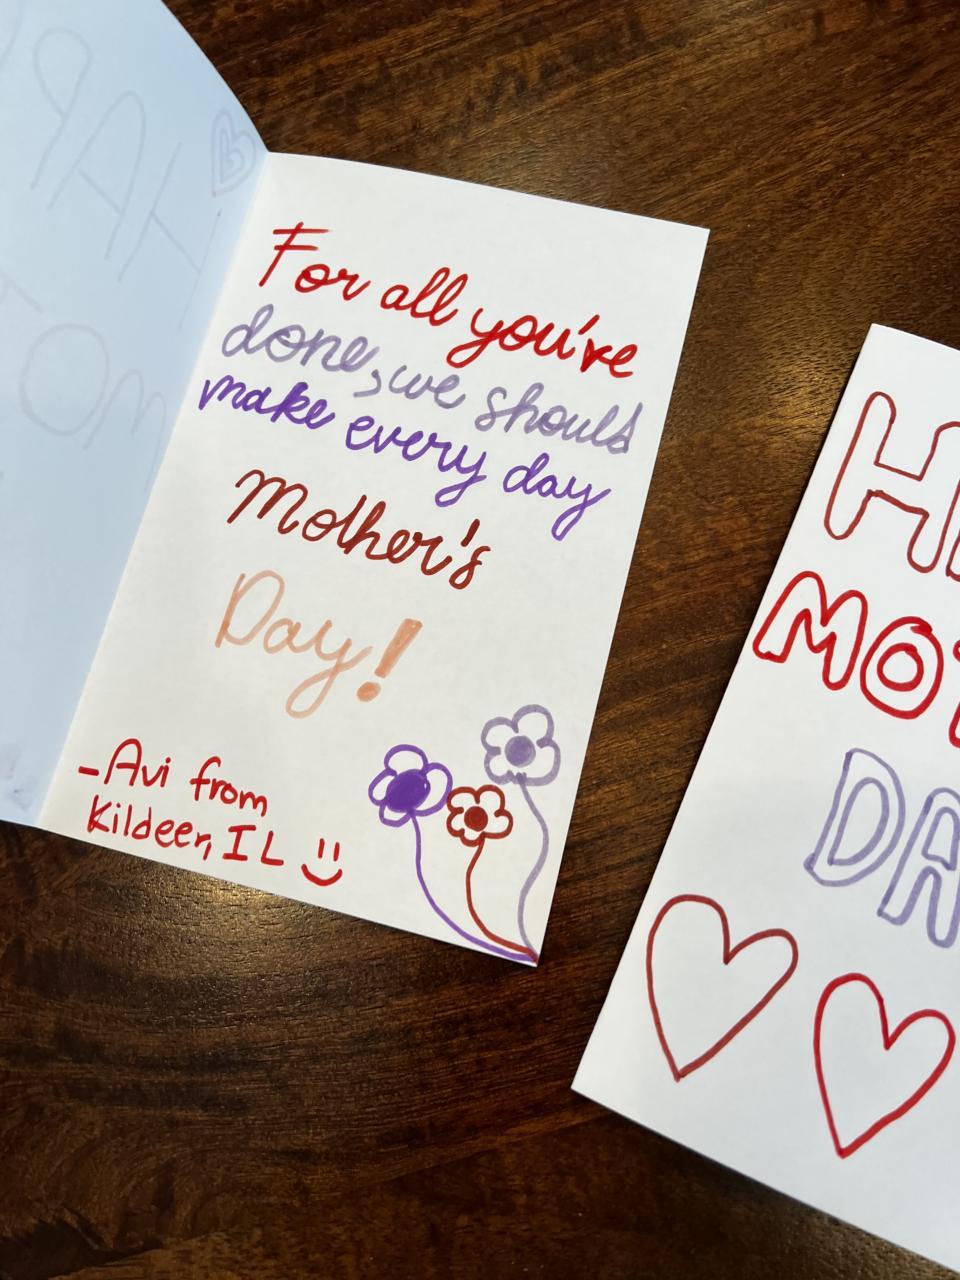 For all you've
done, we should
make every day
Mother's
Day!
-Avi from
Kildeer, IL
H
MOT
DA